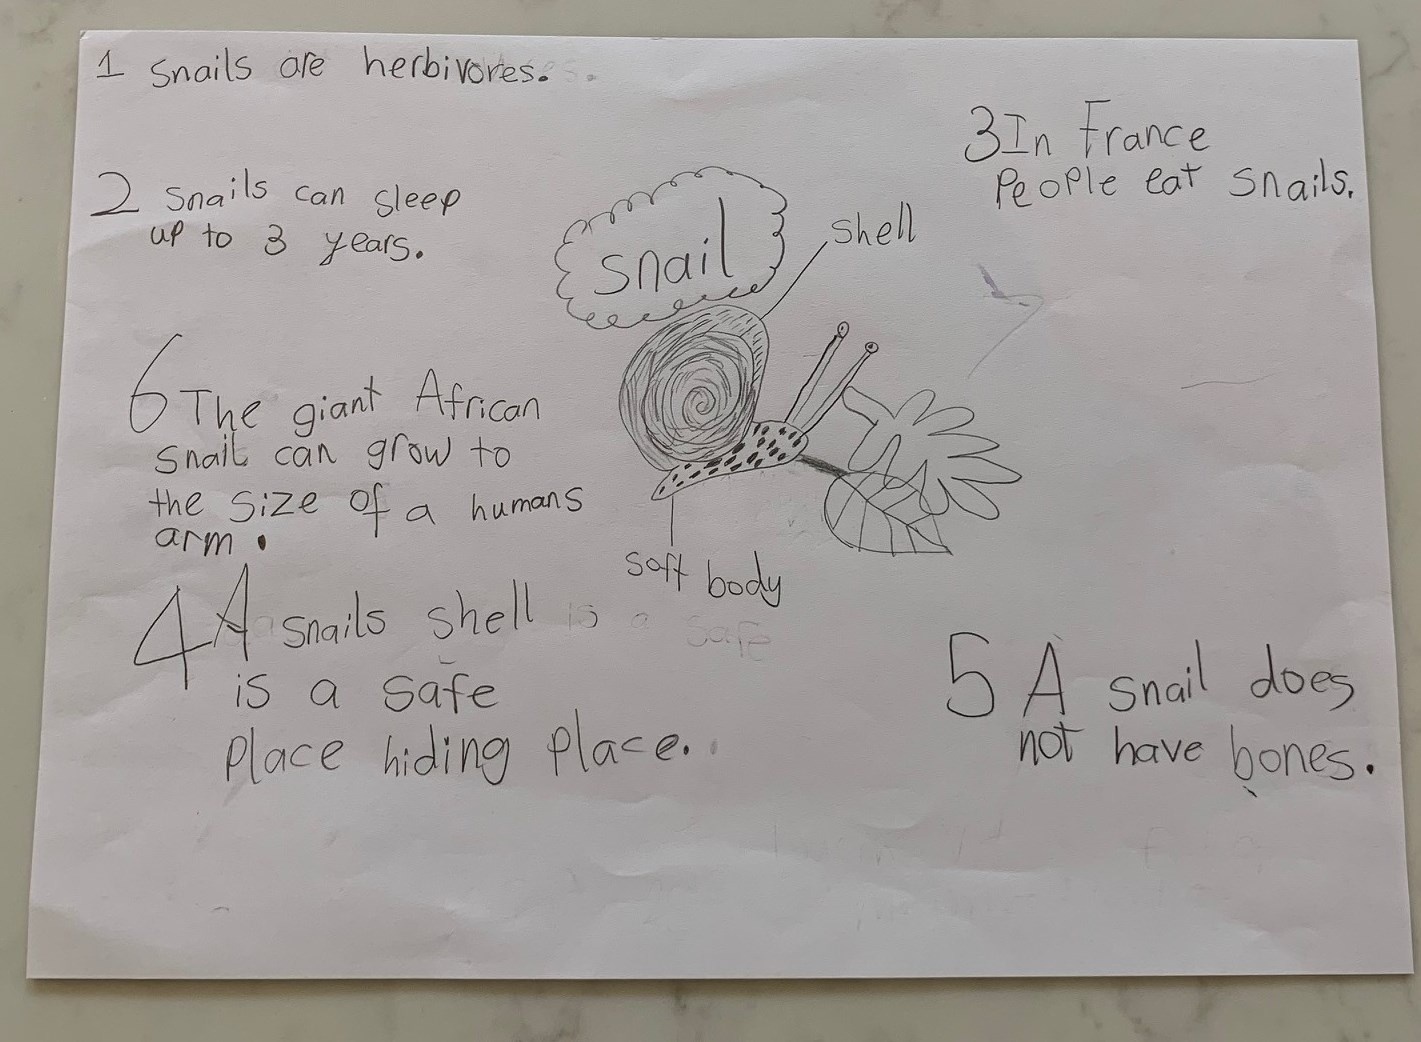 1 Snails are herbivores.
2 Snails can sleep
up to 3 years.
3 In France
People eat snails.
snail
shell
soft body
6 The giant African
snail can grow to
the size of a humans
arm.
4 A snails shell is a safe
is a safe
Place hiding place.
5 A snail does
not have bones.